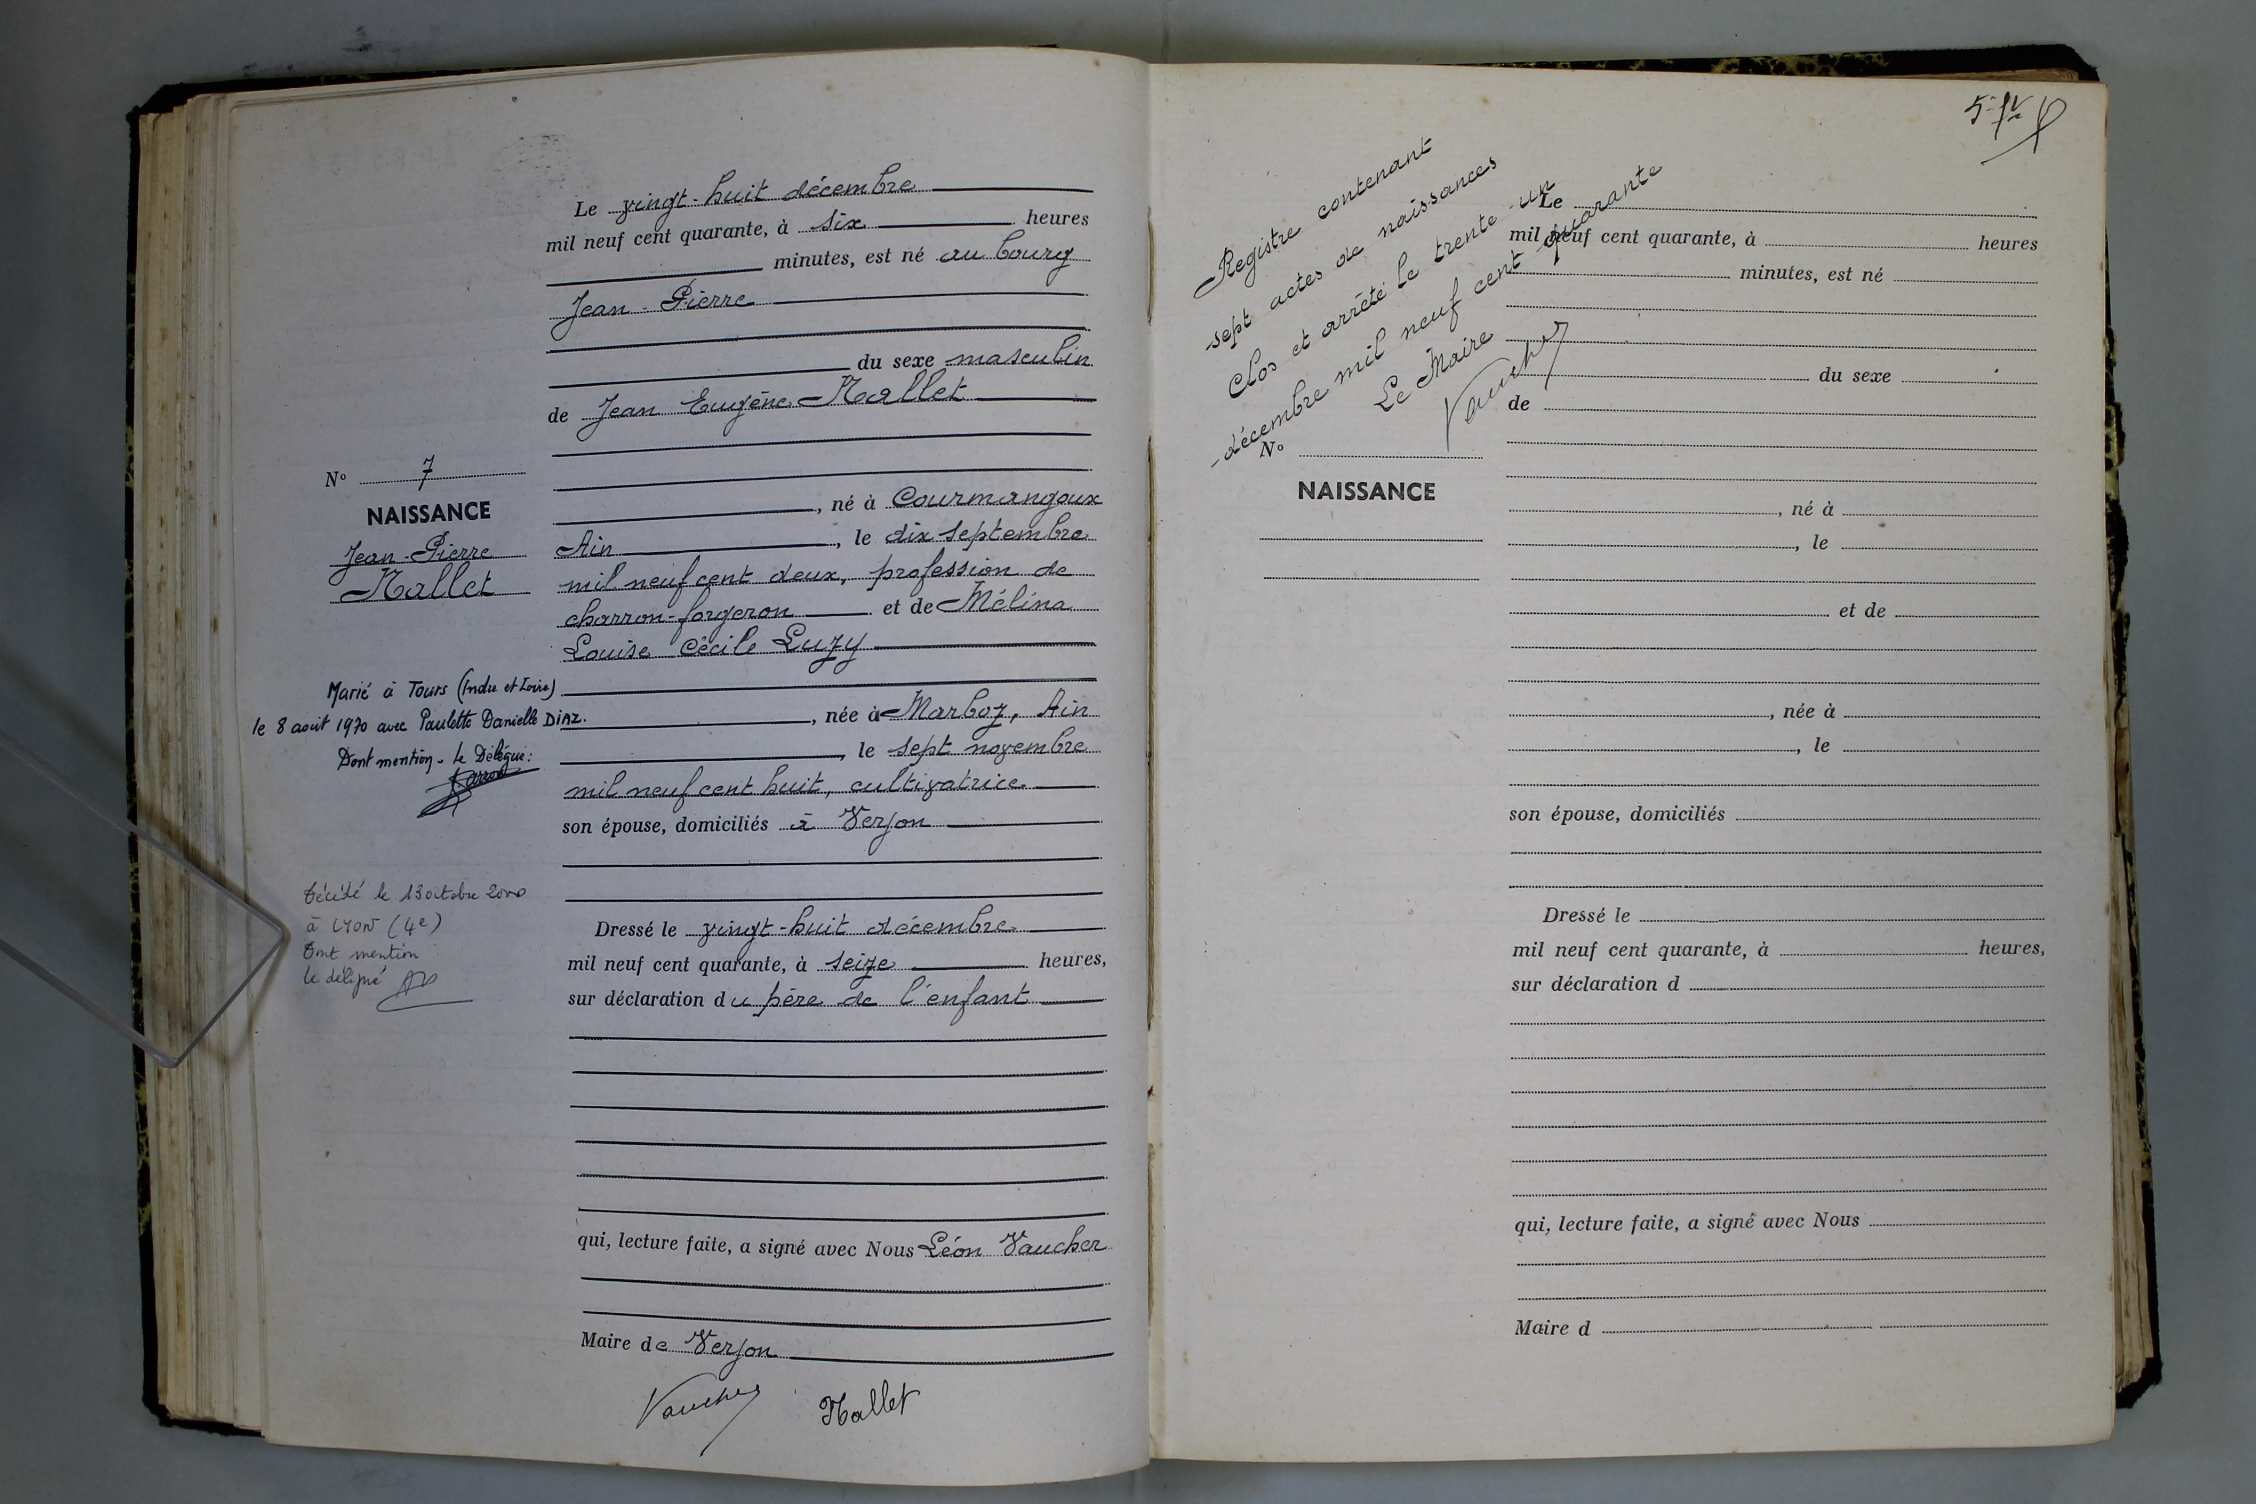 Le vingt-huit décembre
mil neuf cent quarante, à six heures
minutes, est né au bourg
Jean-Pierre
du sexe masculin
de Jean Eugène Mallet
, né à Courmangoux
Ain, le dix septembre
mil neuf cent deux, profession de
charron-forgeron et de Mélina
Louise Cécile Luzy
, née à Marboz, Ain
, le sept novembre
mil neuf cent huit, cultivatrice
son épouse, domiciliés à Verjon
Dressé le vingt-huit décembre
mil neuf cent quarante, à seize heures,
sur déclaration du père de l'enfant
qui, lecture faite, a signé avec Nous Léon Vaucher
Maire de Verjon
Vaucher Mallet
No 7
NAISSANCE
Jean-Pierre
Mallet
Marié à Tours (Indre et Loire)
le 8 août 1970 avec Paulette Danielle DIAZ.
Dont mention - Le Délégué:
Décédé le 13 octobre 2000
à LYON (4e)
Dont mention
le délégué
Registre contenant
sept actes de naissances
Clos et arrêté le trente-un
décembre mil neuf cent quarante
Le Maire
Vaucher
Le
mil neuf cent quarante, à heures
minutes, est né
du sexe
de
No
NAISSANCE
, né à
, le
et de
, née à
, le
son épouse, domiciliés
Dressé le
mil neuf cent quarante, à heures,
sur déclaration d
qui, lecture faite, a signé avec Nous
Maire d